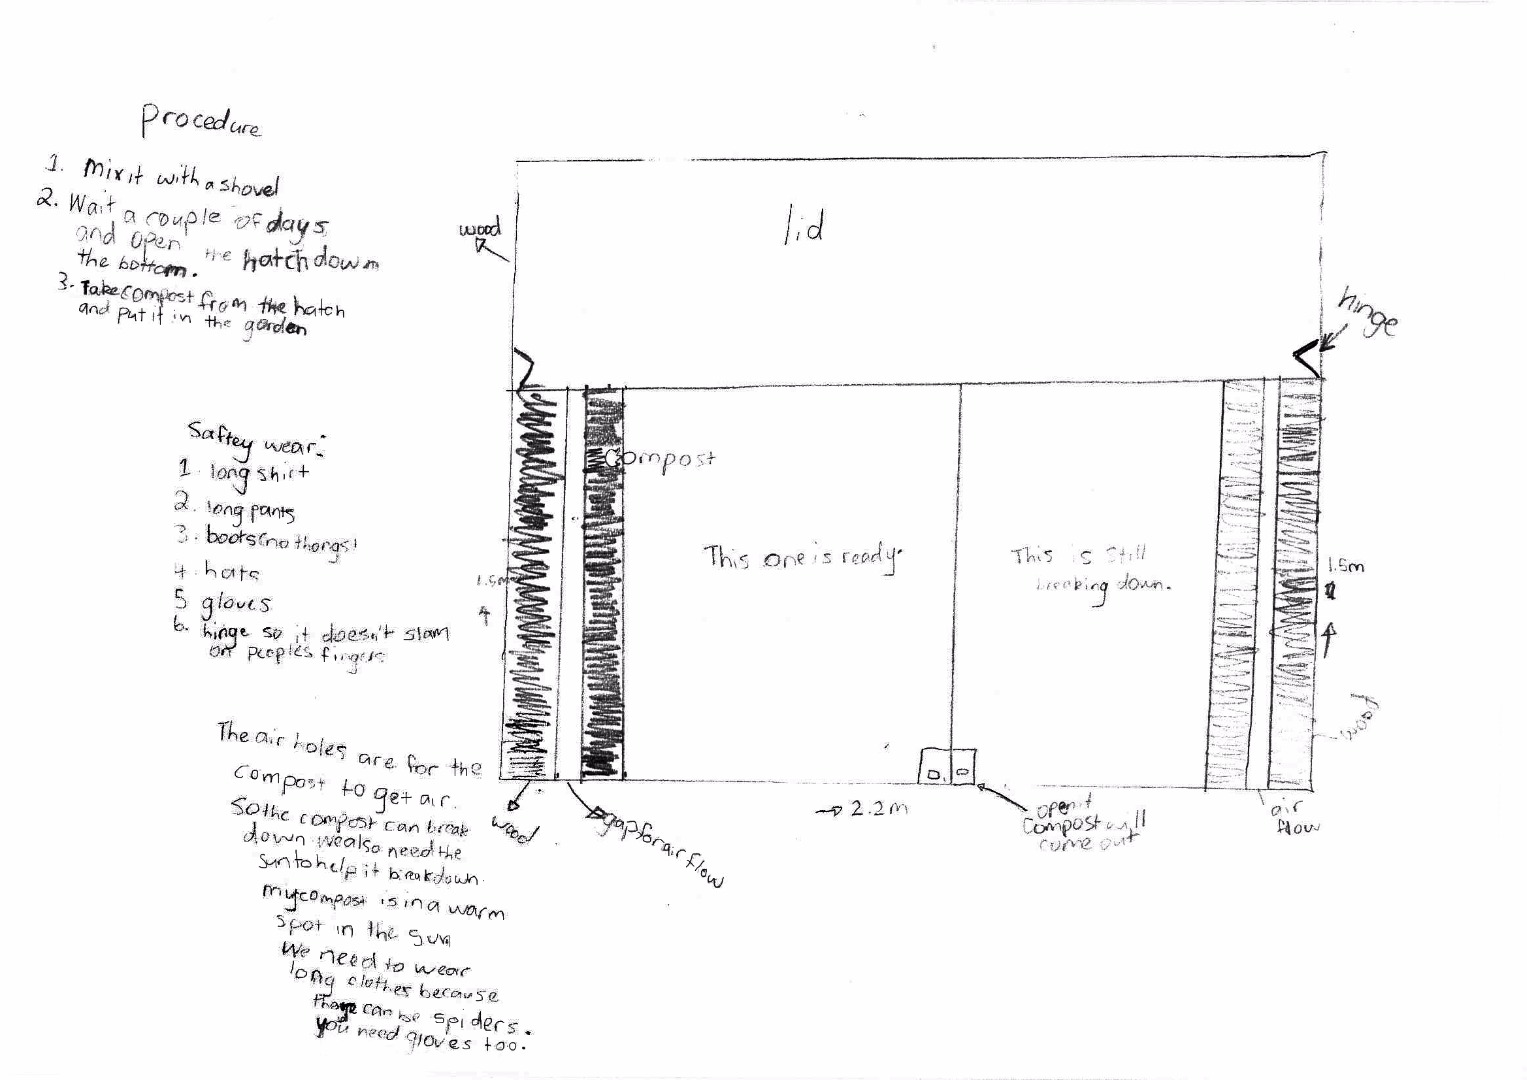 Procedure
1. Mix it with a shovel
2. Wait a couple of days
and open the hatch down
the bottom.
3. Take compost from the hatch
and put it in the garden
Saftey wear:
1. long shirt
2. long pants
3. boots (no thongs)
4. hats
5 gloves
6. hinge so it doesn't slam
on people's fingers
The air holes are for the
compost to get air.
So the compost can break
down we also need the
sun to help it break down.
my compost is in a warm
spot in the sun
We need to wear
long clothes because
there can be spiders.
you need gloves too.
wood
lid
hinge
Compost
This one is ready.
This is still
breaking down.
1.5m
1.5m
wood
wood
gap for air flow
2.2m
open it
compost will
come out
air
flow